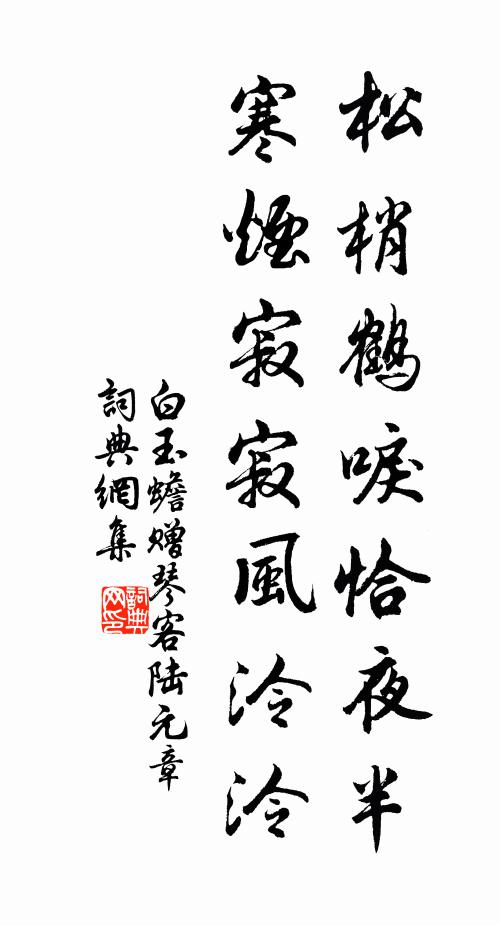 松梢鶴唳恰夜半
寒煙寂寂風泠泠
白玉蟾贈琴客陆元章
詞典網集
詞典网印